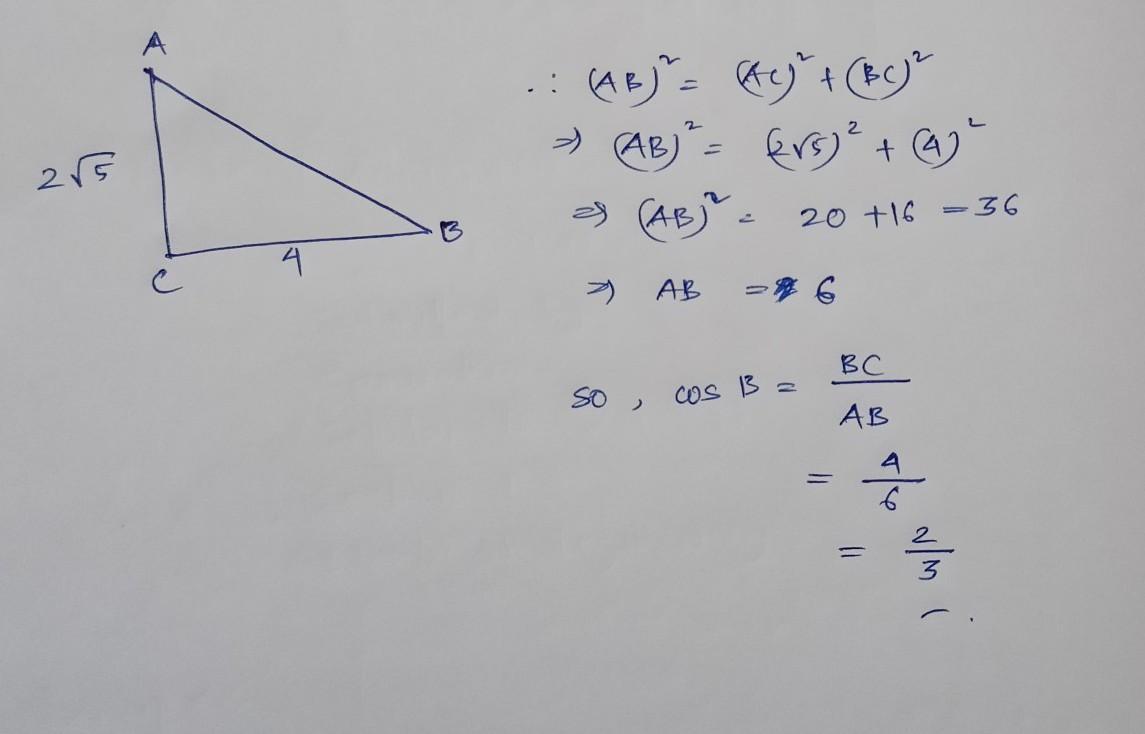 A
2√5
B
4
C
∴ (AB)² = (AC)² + (BC)²
⇒ (AB)² = (2√5)² + (4)²
⇒ (AB)² = 20 + 16 = 36
⇒ AB = 6
so, cos B = BC/AB
= 4/6
= 2/3